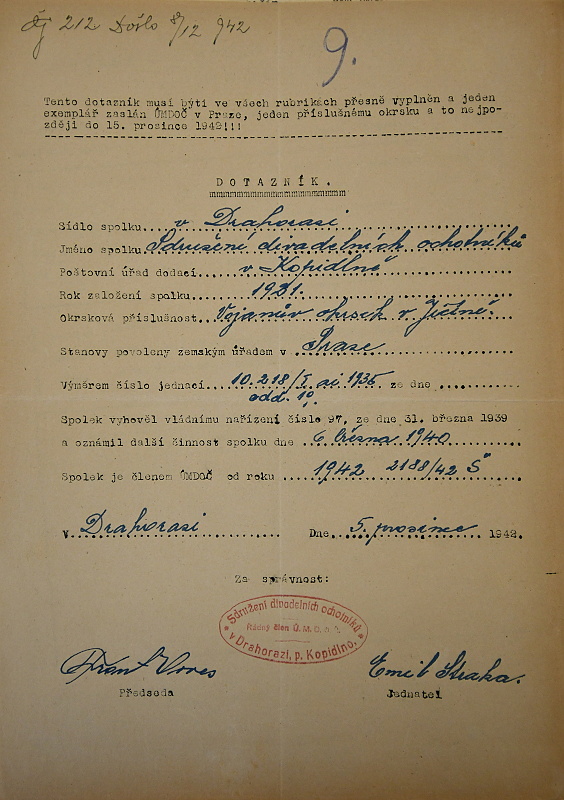 Čj 212 Došlo 8/12 942
9.
Tento dotazník musí býti ve všech rubrikách přesně vyplněn a jeden
exemplář zaslán ÚMDOČ v Praze, jeden příslušnému okrsku a to nejpo-
zději do 15. prosince 1942!!!
DOTAZNÍK.
Sídlo spolku v Drahorazi
Jméno spolku Sdružení divadelních ochotníků
Poštovní úřad dodací v Kopidlně
Rok založení spolku 1931.
Okrsková příslušnost Vojanův okrsek v Jičíně.
Stanovy povoleny zemským úřadem v Praze
Výměrem číslo jednací 10.218/I ai 1935 ze dne
odd. 10.
Spolek vyhověl vládnímu nařízení číslo 97, ze dne 31. března 1939
a oznámil další činnost spolku dne 6. března 1940.
Spolek je členem ÚMDOČ od roku 1942 2188/42 Š
V Drahorazi Dne 5. prosince 1942.
Za správnost:
Sdružení divadelních ochotníků
Řádný člen Ú.M.D.O.Č.
v Drahorazi, p. Kopidlno.
Frant. Vorves Emil Straka.
Předseda Jednatel